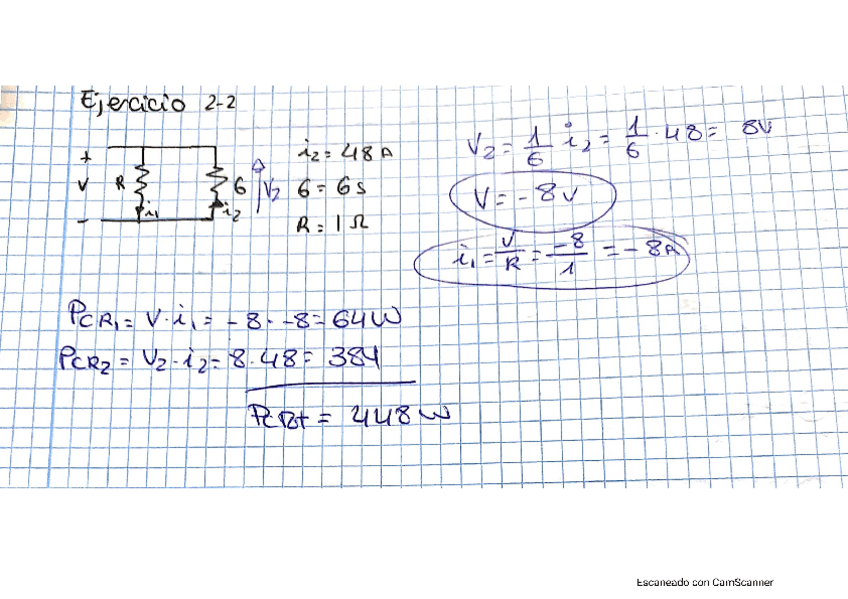 Ejercicio 2-2
+
V
-
R
i₁
6
i₂
V₂
i₂ = 48 A
6 = 6 s
R = 1 Ω
V₂ = 1/6 i₂ = 1/6 · 48 = 8V
V = - 8 V
i₁ = V/R = -8/1 = - 8A
PCR₁ = V · i₁ = - 8 · -8 = 64W
PCR₂ = V₂ · i₂ = 8 · 48 = 384
= 448 W
Escaneado con CamScanner